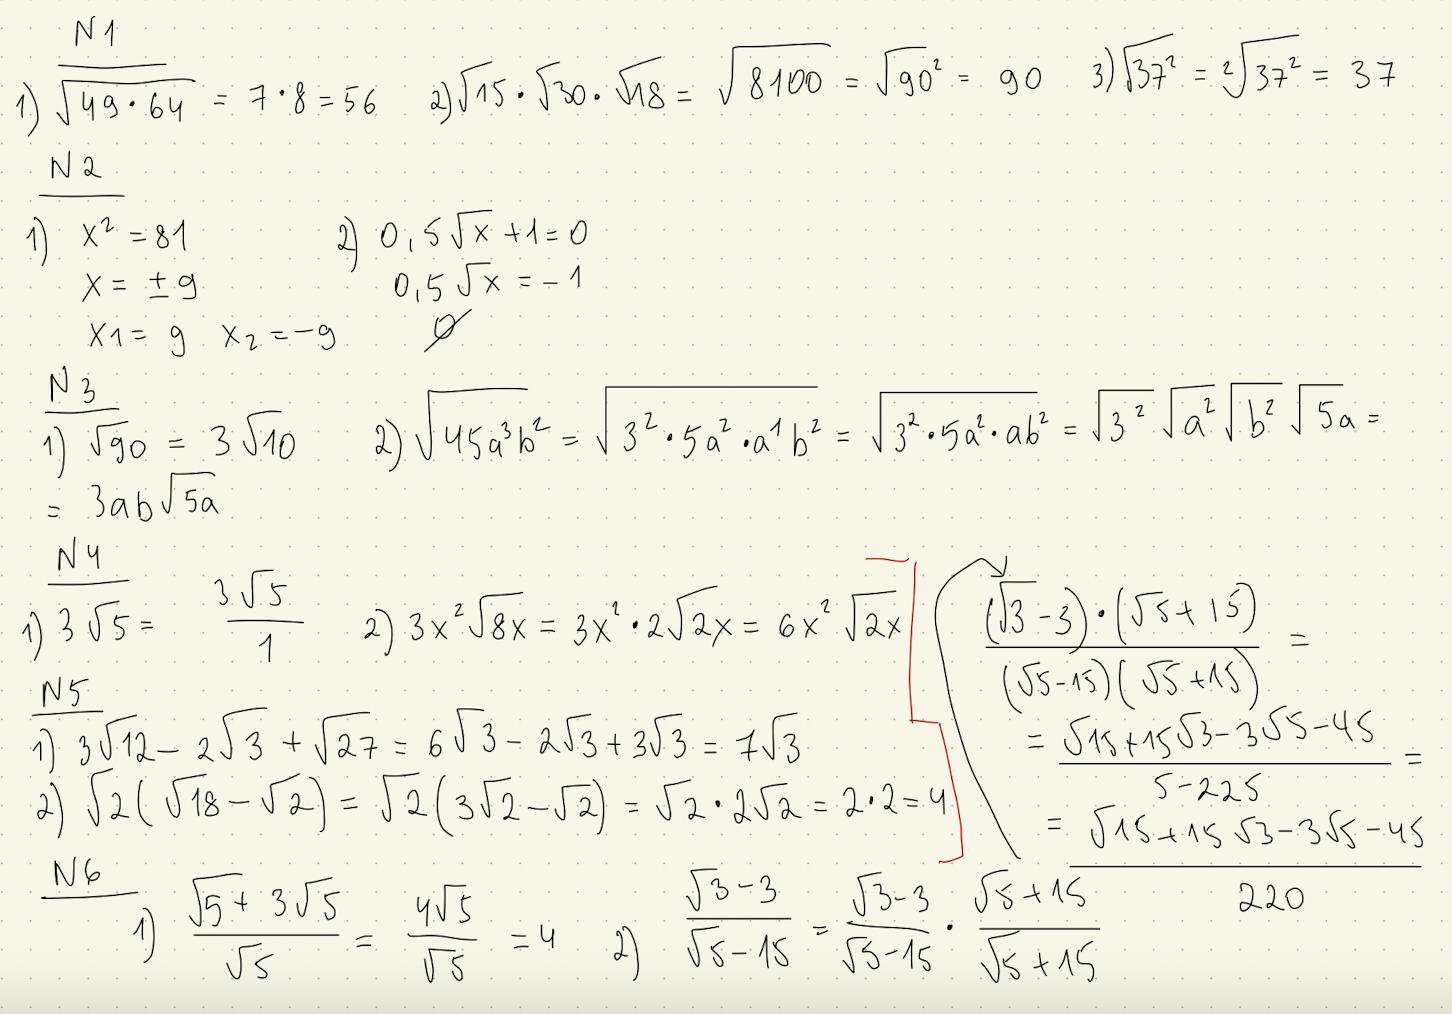 N1
1) √(49·64) = 7·8 = 56 2) √15·√30·√18 = √8100 = √90² = 90 3) √37² = ²√37² = 37
N2
1) x² = 81 2) 0,5√x + 1 = 0
x = ±9 0,5√x = -1
x1 = 9 x₂ = -9 ∅
N3
1) √90 = 3√10 2) √(45a³b²) = √(3²·5a²·a¹b²) = √(3²·5a²·ab²) = √3² √a² √b² √5a =
= 3ab√5a
N4
1) 3√5 = 3√5/1 2) 3x²√8x = 3x²·2√2x = 6x²√2x
N5
1) 3√12 - 2√3 + √27 = 6√3 - 2√3 + 3√3 = 7√3
2) √2(√18 - √2) = √2(3√2 - √2) = √2·2√2 = 2·2 = 4
N6
1) (√5 + 3√5)/√5 = 4√5/√5 = 4 2) (√3-3)/(√5-15) = (√3-3)/(√5-15) · (√5+15)/(√5+15)
((√3-3)·(√5+15))/((√5-15)(√5+15)) =
= (√15+15√3-3√5-45)/(5-225) =
= (√15+15√3-3√5-45)/220